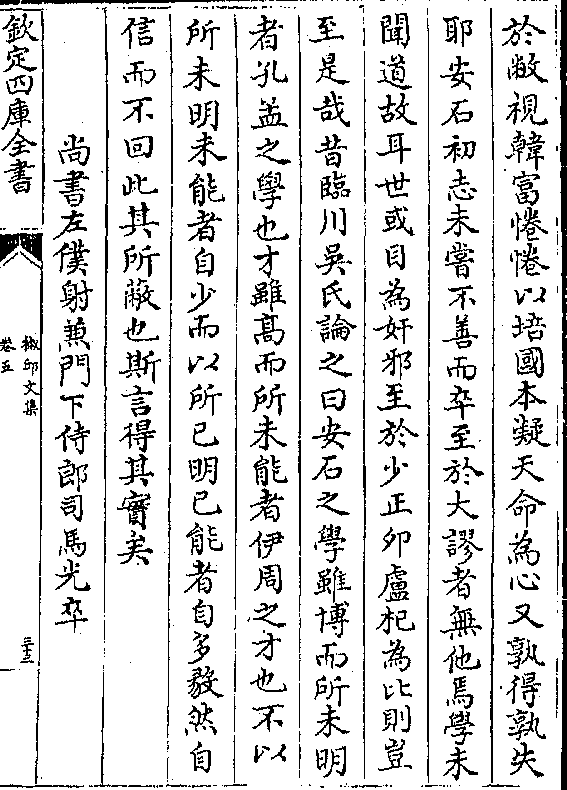 於敝視韓富惓惓以培國本凝天命為心又孰得孰失
耶安石初志未嘗不善而卒至於大謬者無他焉學未
聞道故耳世或目為奸邪至於少正夘盧杞為比則豈
至是哉昔臨川吳氏論之曰安石之學雖博而所未明
者孔孟之學也才雖髙而所未能者伊周之才也不以
所未明未能者自少而以所已明已能者自多毅然自
信而不回此其所蔽也斯言得其實矣
尚書左僕射兼門下侍郎司馬光卒
欽定四庫全書
椒邱文集
卷五
三十三